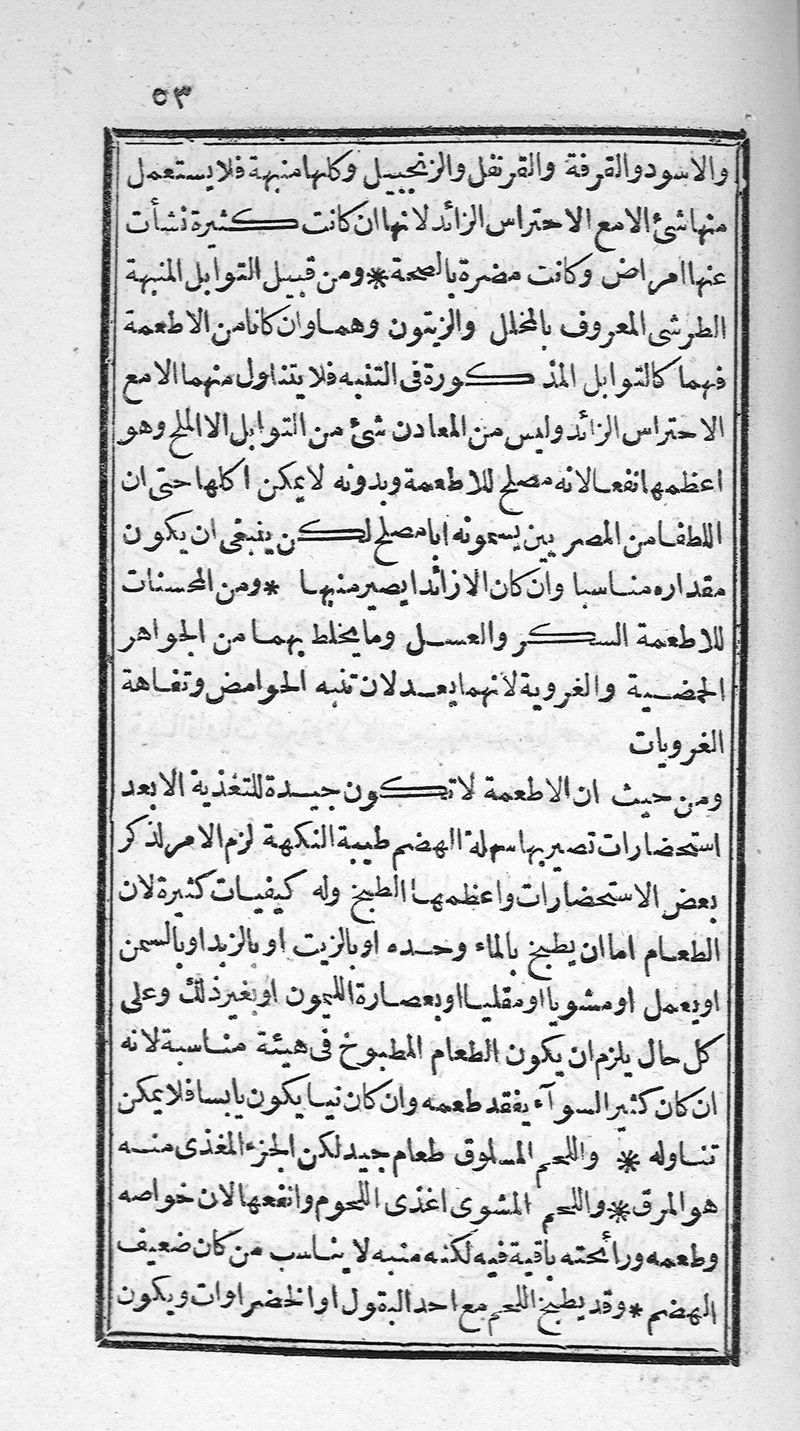 ٥٣
والاسود والقرفة والقرنفل والزنجبيل وكلها منبهة فلا يستعمل
منها شئ الا مع الاحتراس الزائد لانها ان كانت كثيرة نشأت
عنها امراض وكانت مضرة بالصحة * ومن قبيل التوابل المنبهة
الطرشى المعروف بالمخلل والزيتون وهما وان كانا من الاطعمة
فهما كالتوابل المذكورة فى التنبه فلا يتناول منهما الا مع
الاحتراس الزائد وليس من المعادن شئ من التوابل الا الملح وهو
اعظمها نفعا لانه مصلح للاطعمة وبدونه لا يمكن اكلها حتى ان
اللطفا من المصريين يسمونه ابا مصلح لكن ينبغى ان يكون
مقداره مناسبا وان كان الا زائدا يصير منبها * ومن المحسنات
للاطعمة السكر والعسل وما يخلط بهما من الجواهر
الحمضية والغروية لانهما يعدلان تنبه الحوامض وتفاهة
الغرويات
ومن حيث ان الاطعمة لا تكون جيدة للتغذية الا بعد
استحضارات تصير بها سهلة الهضم طيبة النكهة لزم الامر لذكر
بعض الاستحضارات واعظمها الطبخ وله كيفيات كثيرة لان
الطعام اما ان يطبخ بالماء وحده او بالزيت او بالزبد او بالسمن
او يعمل او مشويا او مقليا او بعصارة الليمون او بغير ذلك وعلى
كل حال يلزم ان يكون الطعام المطبوخ فى هيئة مناسبة لانه
ان كان كثير السوآء يفقد طعمه وان كان نيا يكون يابسا فلا يمكن
تناوله * واللحم المسلوق طعام جيد لكن الجزء المغذى منه
هو المرق * واللحم المشوى اغذى اللحوم وانفعها لان خواصه
وطعمه ورائحته باقية فيه لكنه منبه لا يناسب من كان ضعيف
الهضم * وقد يطبخ اللحم مع احد البقول او الخضراوات ويكون